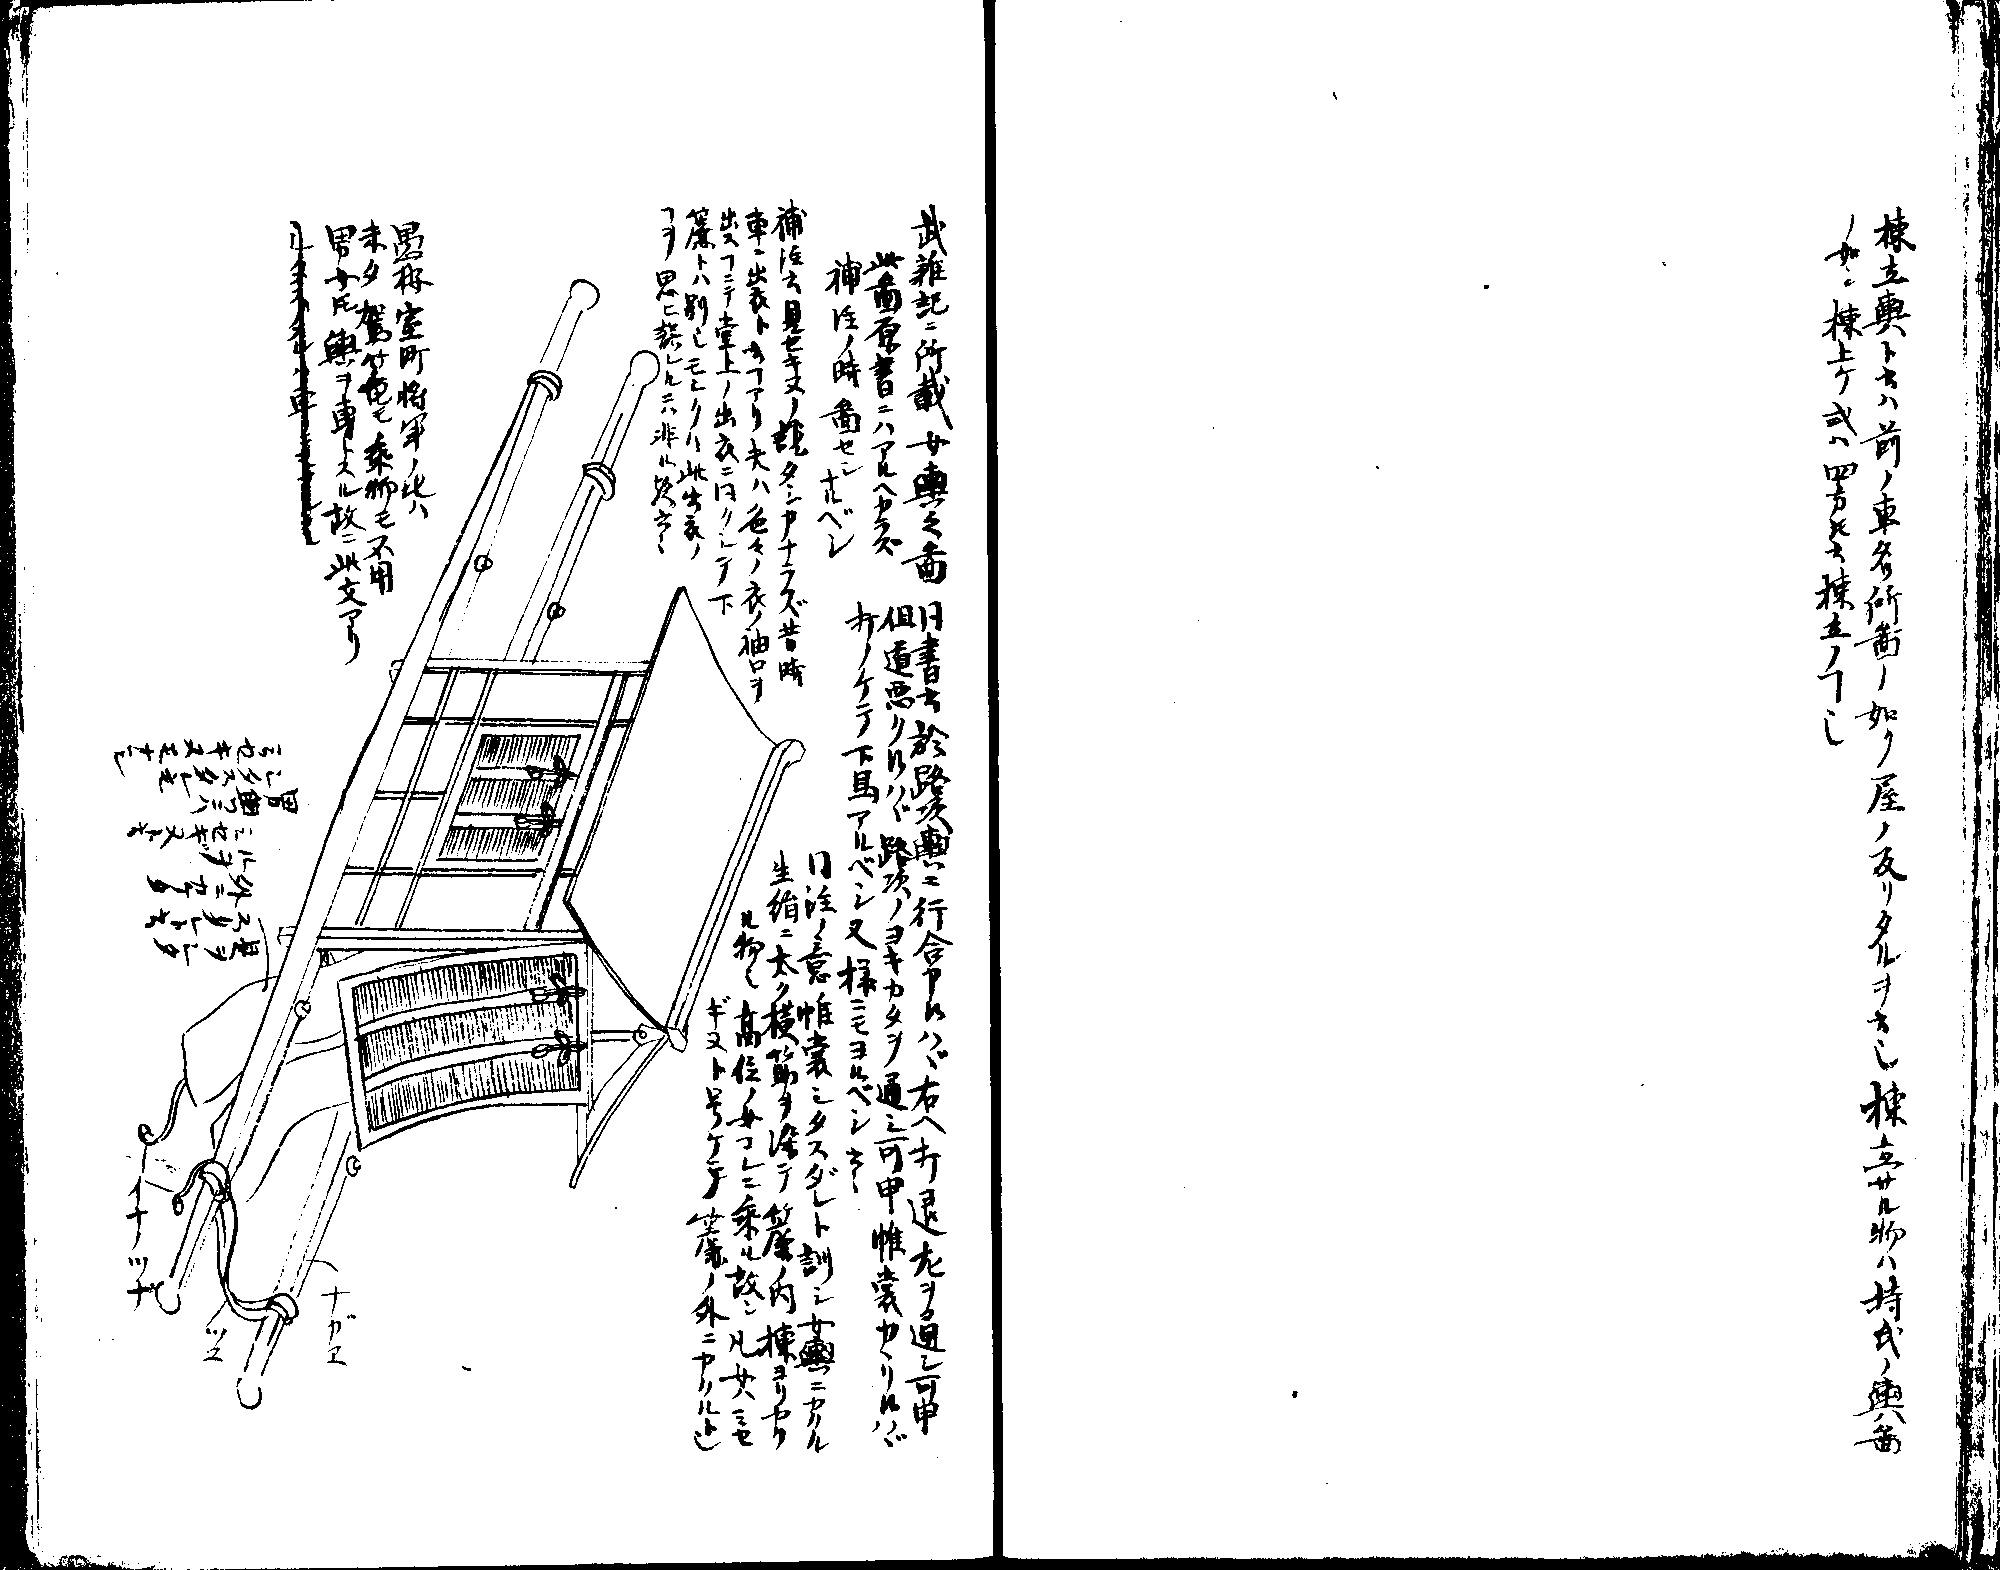 棟立輿ト云ハ前ノ車名所圖ノ如ク屋ノ反リタルヲ云也 棟立サル物ハ持氏ノ輿圖
ノ如シ 棟上ケ或ハ四方 棟立ノ
武雜記ニ所載女輿之圖
此圖原書ニハアルヘカラズ
補注ノ時圖セシナルベシ
同書云於路次輿ニ行合申候ハヾ右ヘ打退左ヲ通シ可申
但道悪ク候ハヾ路次ノヨキカタヲ通シ可申帷裳カヽリ候ハヾ
打ノケテ下馬アルベシ又様ニモヨルベシ云々
補注云見セキヌノ説タシカナラズ昔時
車ニ出衣ト云フアリ夫ハ色々ノ衣ノ袖口ヲ
出スニテ堂上ノ出衣ニ同クシテ下
簾トハ別也モシクハ此出衣ノ
ヲ思ヒ誤レルニハ非ル歟云々
同注ノ意帷裳シタスダレト訓シ女輿ニカヽル
生絹ニ太ク横筋ヲ染テ簾ノ内棟ヨリカヽ
ル物也 高位ノ女コレニ乗ル故ニ凡女ハミセ
ギヌト号ケテ簾ノ外ニカヽル
愚按室町将軍ノ比ハ
未タ駕篭モ乗物モ不用
男女共輿ヲ専トスル故ニ此文アリ
是ヲシタ
スダレト云
外ニカヽル
ミセギヌト云
ナガエ
ツエ
イナノツナ